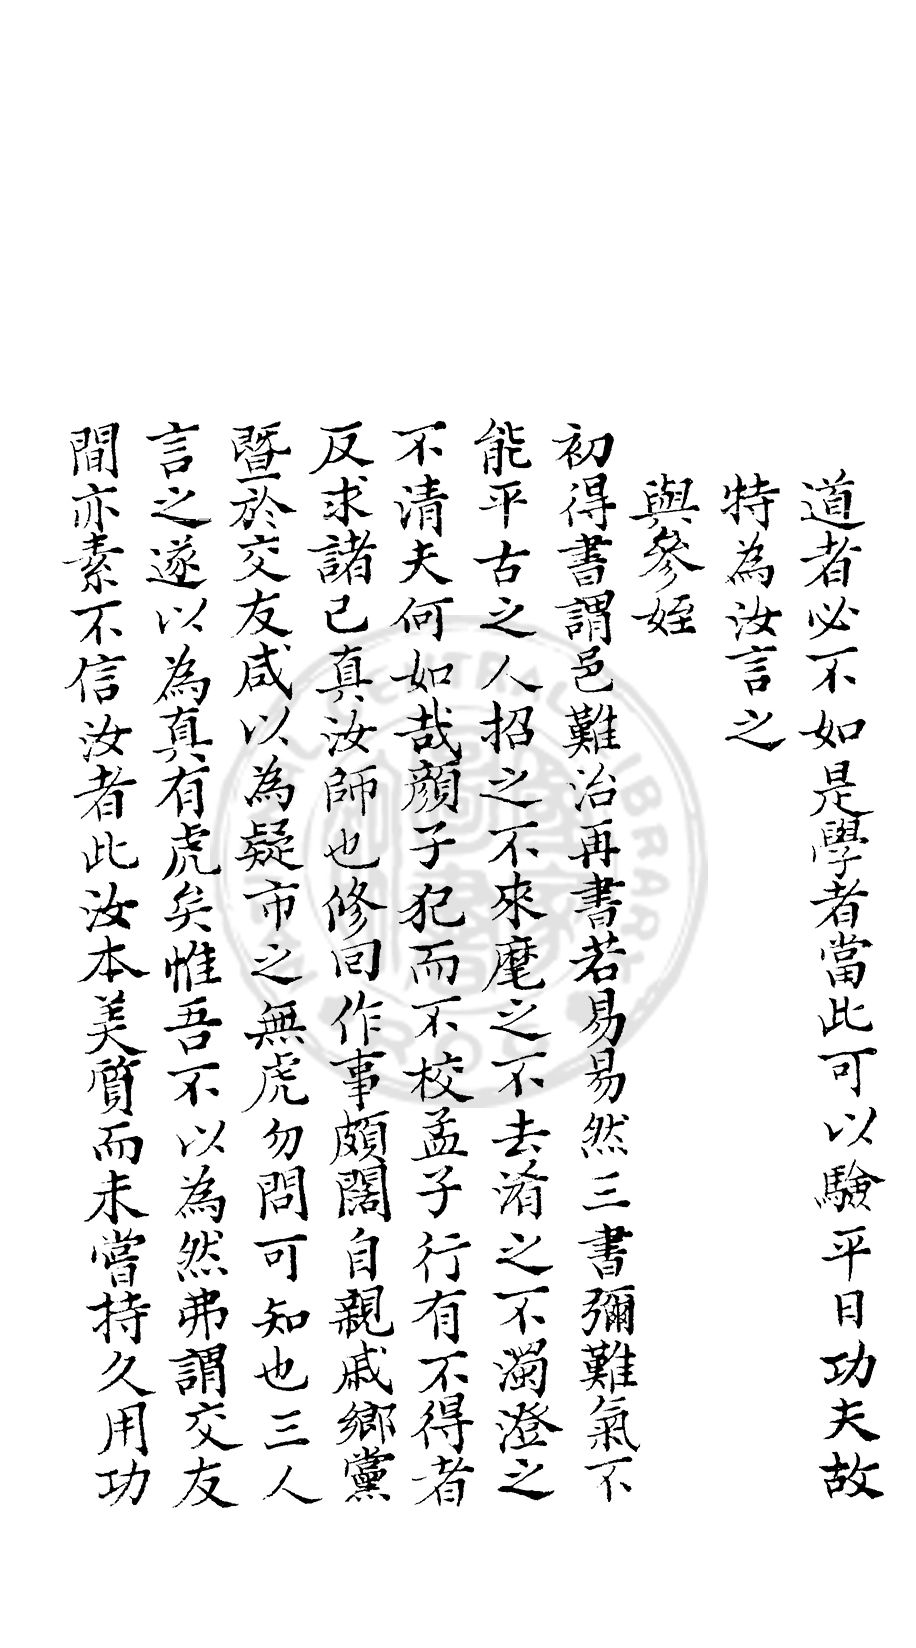 道者必不如是學者當此可以驗平日功夫故
特為汝言之
與參姪
初得書謂邑難治再書若易易然三書彌難氣不
能平古之人招之不來麾之不去淆之不濁澄之
不清夫何如哉顏子犯而不校孟子行有不得者
反求諸已真汝師也修囘作事頗闊自親戚鄉黨
暨於交友咸以為疑市之無虎勿問可知也三人
言之遂以為真有虎矣惟吾不以為然弗謂交友
間亦素不信汝者此汝本美質而未嘗持久用功